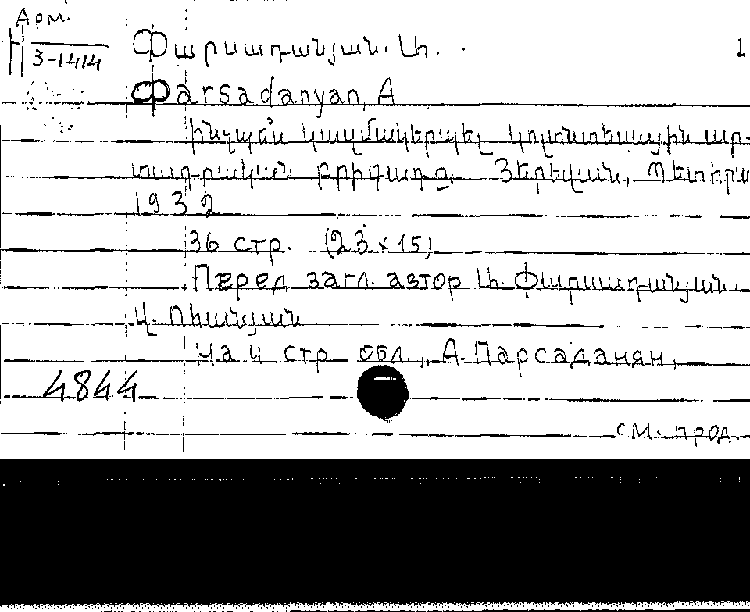 Арм.
3-1414
Փարսադանյան. Ա. 1
Փarsadanyan, A
Ինչպես կազմակերպել կոլտնտեսային ար-
տադրական բրիգադը Յերեվան, Պետհրա
1932
36 стр. (23×15)
Перед загл. автор Ա. Փարսադանյան
На 4 стр обл., А. Парсаданян,
4844
см. прод.